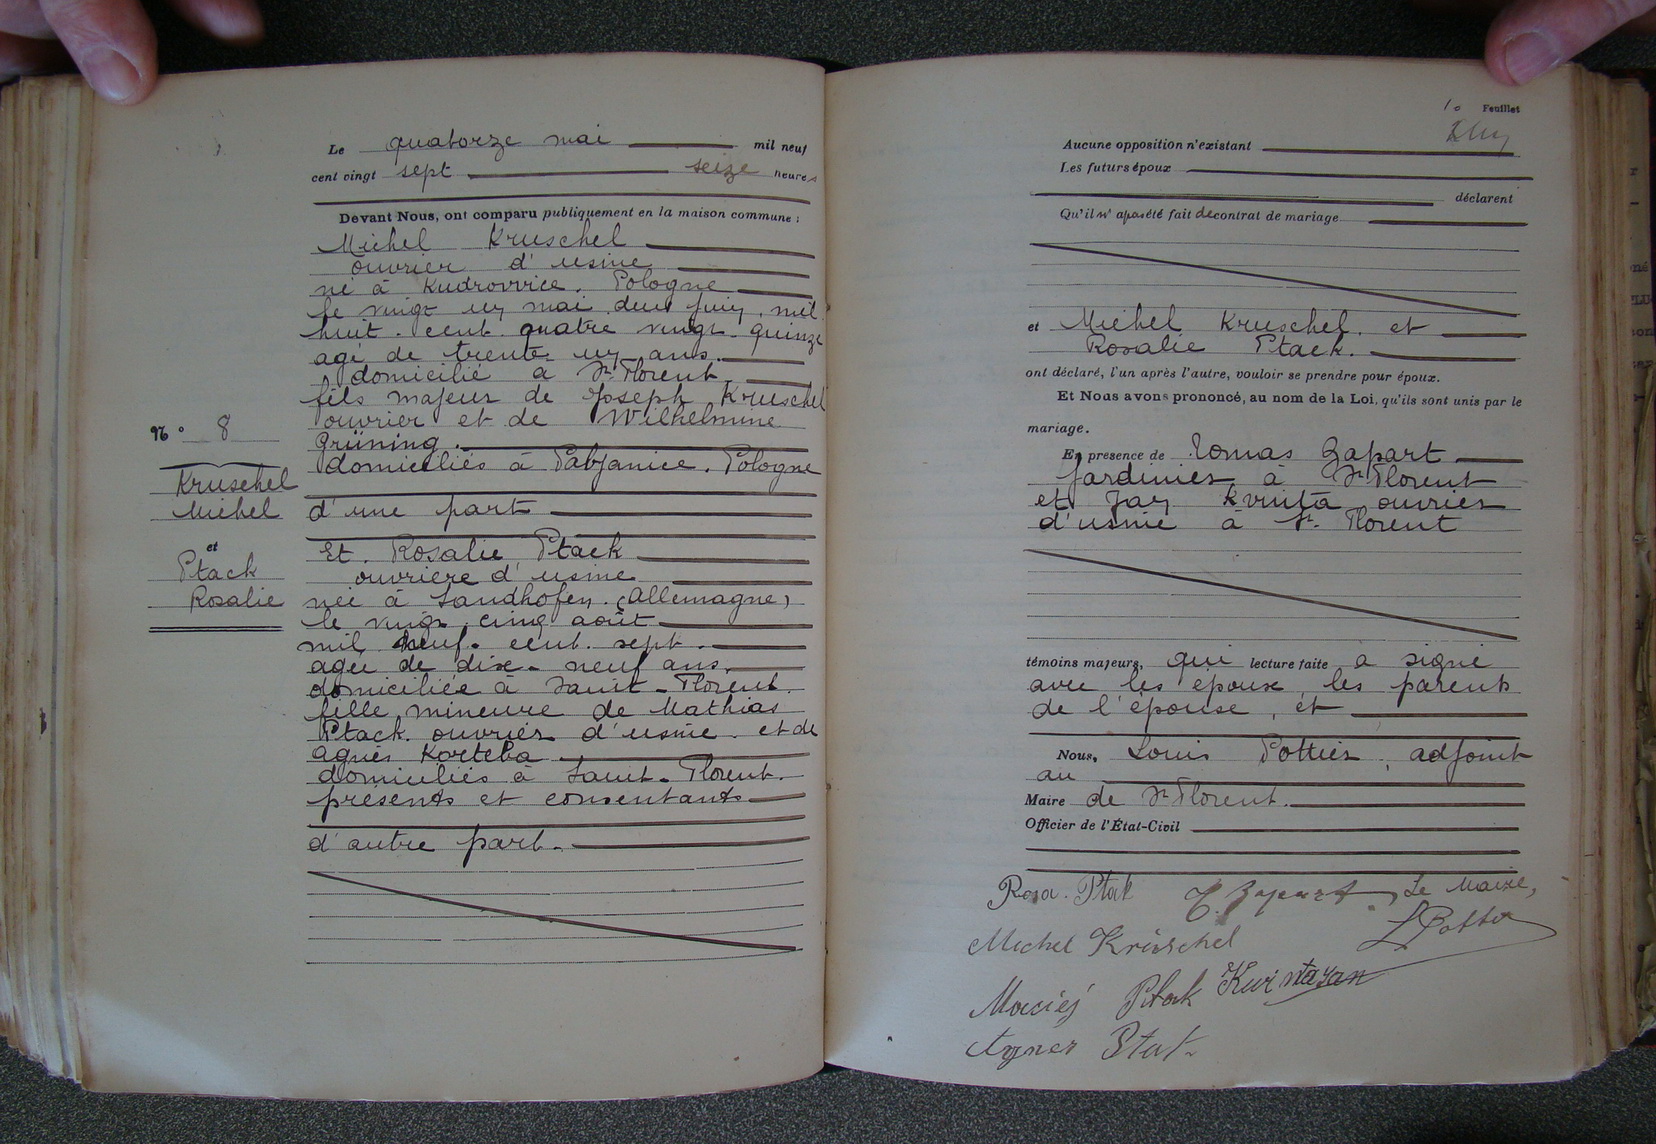 Le quatorze mai mil neuf
cent vingt sept seize heures
Devant Nous, ont comparu publiquement en la maison commune :
Michel Kruschel
ouvrier d'usine
né à Kudrovvice. Pologne
le vingt un mai deux juin, mil
huit. cent. quatre vingt. quinze
agé de trente un ans.
domicilié à St Florent
fils majeur de Joseph Kruschel
ouvrier et de Wilhelmine
Grüning.
domiciliés à Pabjanice. Pologne
d'une part
N° 8
Kruschel
Michel
et
Ptack
Rosalie
Et. Rosalie Ptack
ouvrière d'usine
née à Sandhofen. (Allemagne)
le vingt cinq août
mil neuf. cent. sept.
agée de dix. neuf ans.
domiciliée à Saint-Florent.
fille mineure de Mathias
Ptack. ouvrier d'usine. et de
agnès Korteba
domiciliés à Saint-Florent.
présents et consentants
d'autre part.
10 Feuillet
Aucune opposition n'existant
Les futurs époux
déclarent
Qu'il n'a pas été fait de contrat de mariage
et Michel Kruschel. et
Rosalie Ptack.
ont déclaré, l'un après l'autre, vouloir se prendre pour époux.
Et Nous avons prononcé, au nom de la Loi, qu'ils sont unis par le
mariage.
En présence de Tomas Zapart
Jardinier à St Florent
et Jan Kvinta ouvrier
d'usine à St. Florent
témoins majeurs, qui lecture faite a signé
avec les époux, les parents
de l'épouse, et
Nous, Louis Pottier, adjoint
au
Maire de St Florent.
Officier de l'État-Civil
Rosa. Ptak T. Zapart Le Maire,
Michel Krüschel L Pottier
Maciej Ptak Kwintajan
Agnes Ptak